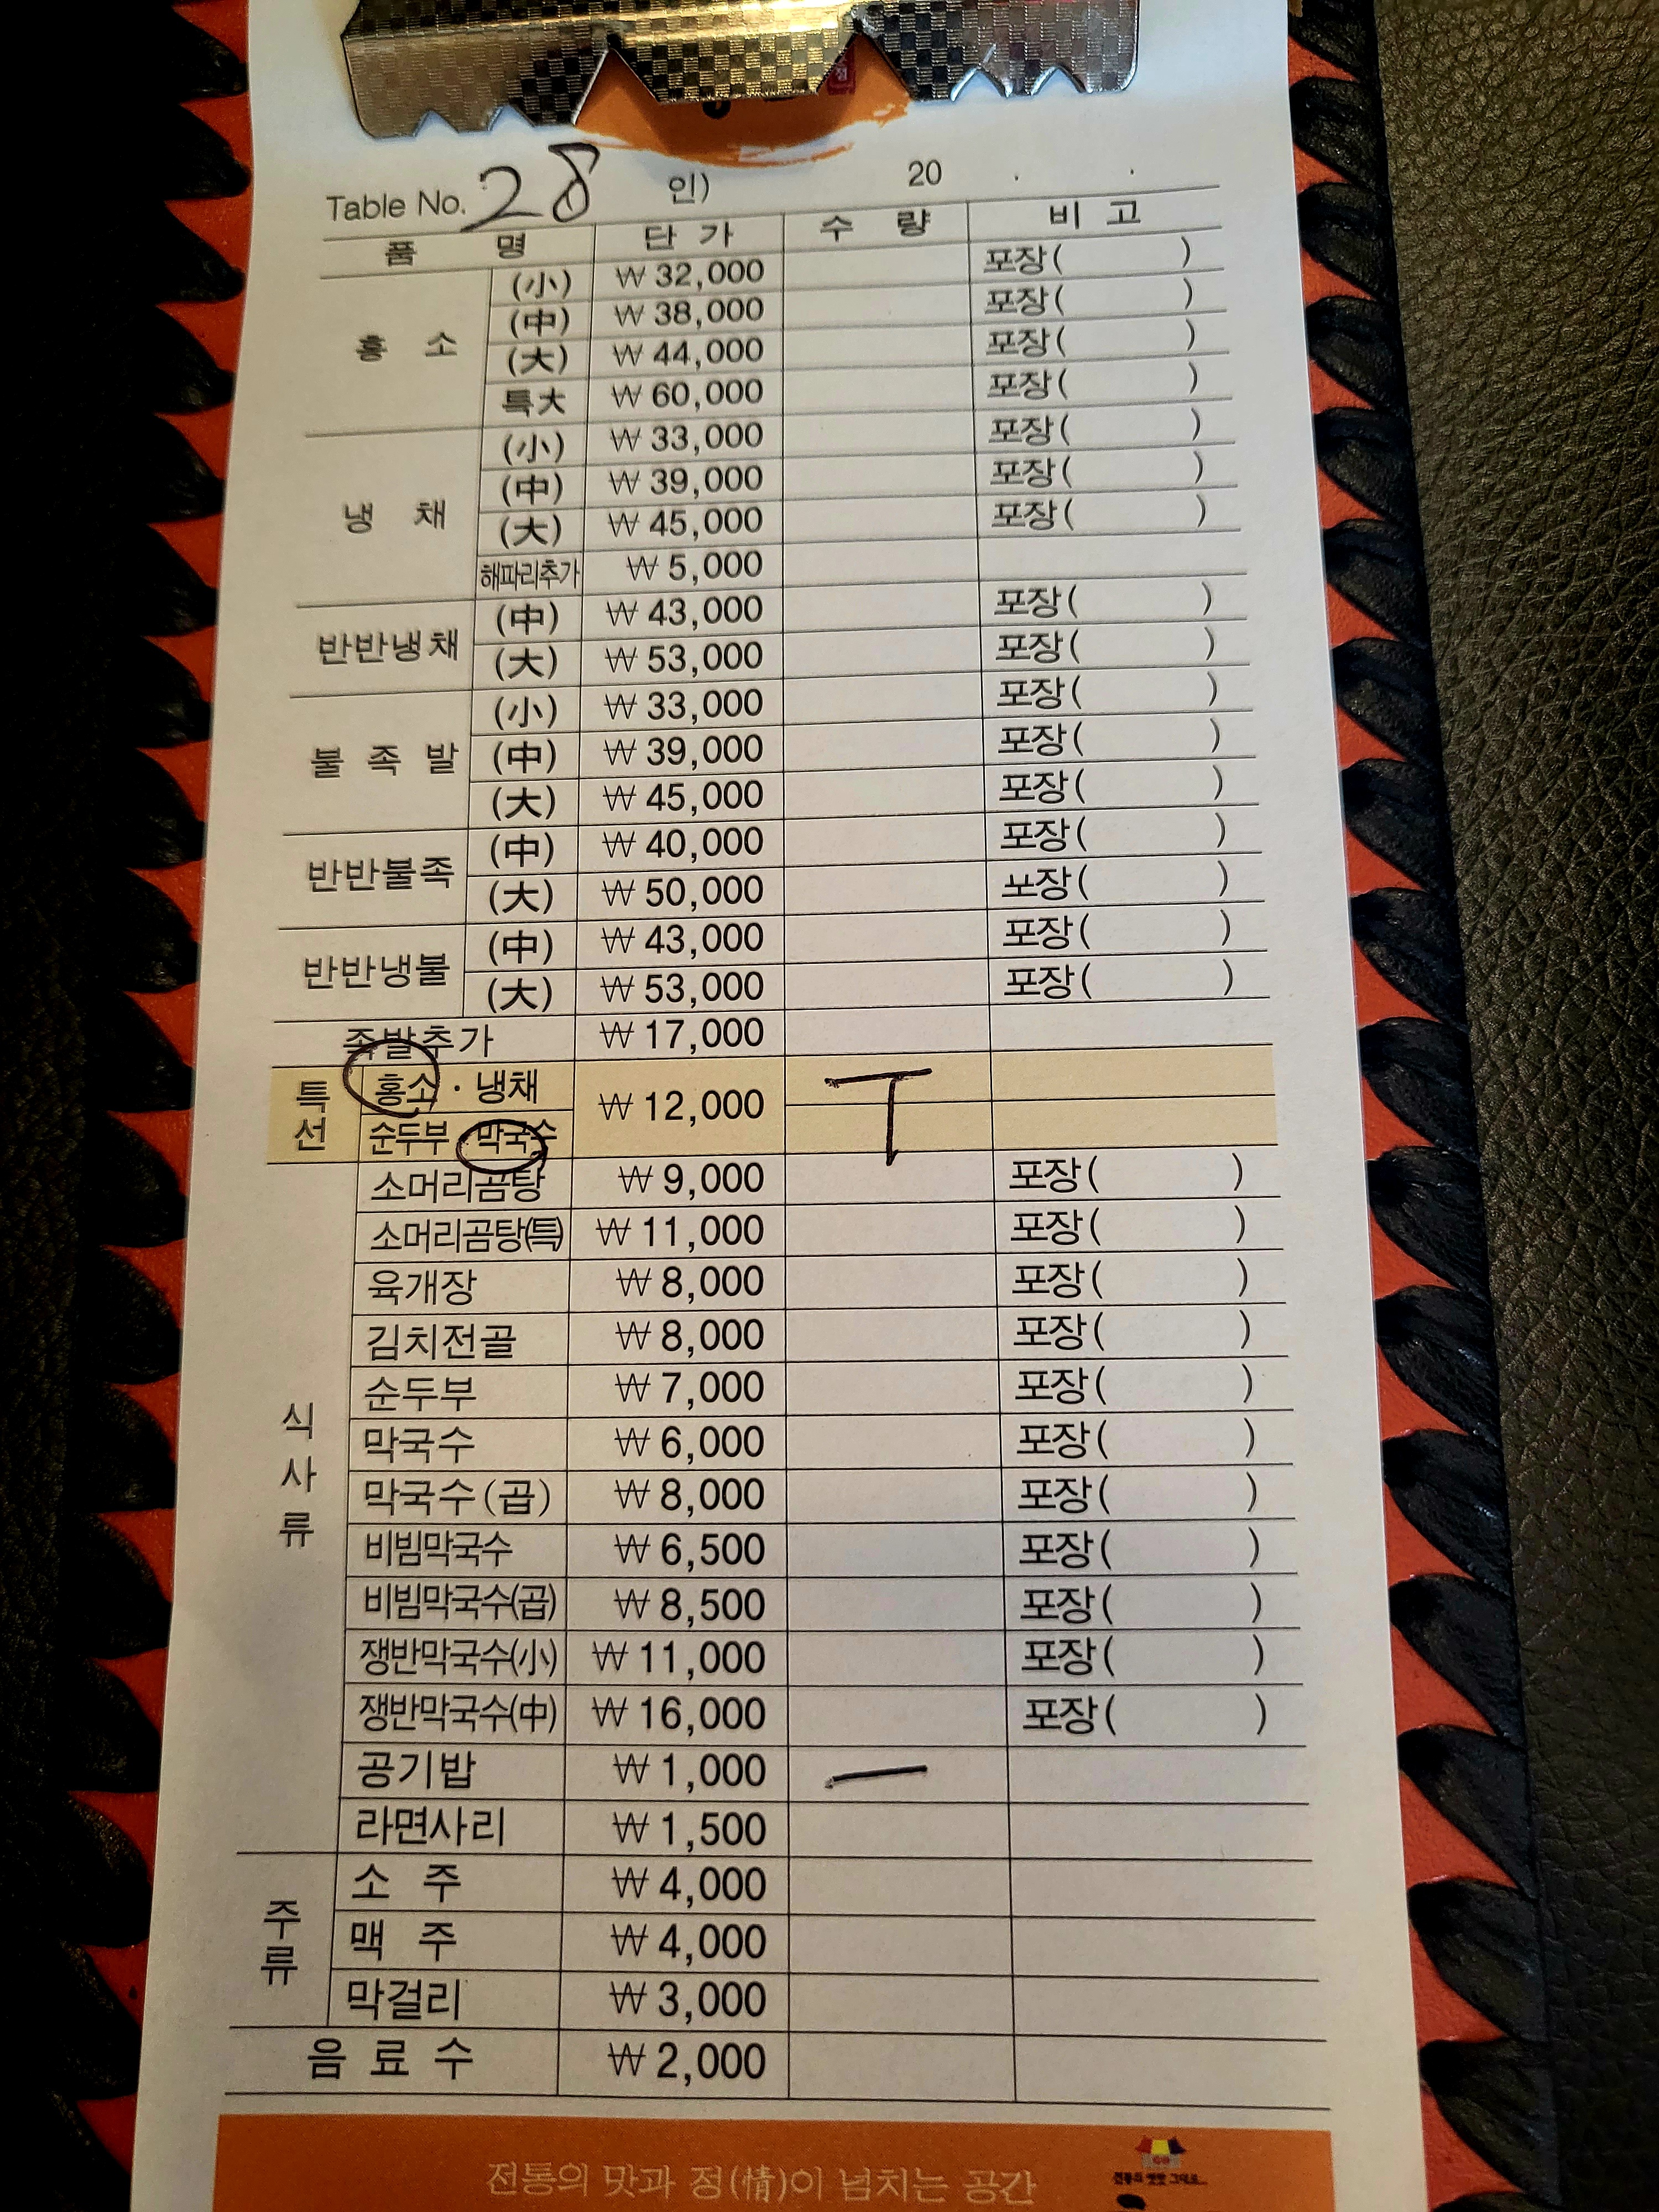 Table No. 28 인) 20 . .
품 명 단 가 수 량 비 고
홍 소 (小) ₩ 32,000 포장( )
(中) ₩ 38,000 포장( )
(大) ₩ 44,000 포장( )
특大 ₩ 60,000 포장( )
냉 채 (小) ₩ 33,000 포장( )
(中) ₩ 39,000 포장( )
(大) ₩ 45,000 포장( )
해파리추가 ₩ 5,000
반반냉채 (中) ₩ 43,000 포장( )
(大) ₩ 53,000 포장( )
불 족 발 (小) ₩ 33,000 포장( )
(中) ₩ 39,000 포장( )
(大) ₩ 45,000 포장( )
반반불족 (中) ₩ 40,000 포장( )
(大) ₩ 50,000 포장( )
반반냉불 (中) ₩ 43,000 포장( )
(大) ₩ 53,000 포장( )
족발추가 ₩ 17,000
특선 홍소 · 냉채 ₩ 12,000 T
순두부 막국수
식사류 소머리곰탕 ₩ 9,000 포장( )
소머리곰탕(특) ₩ 11,000 포장( )
육개장 ₩ 8,000 포장( )
김치전골 ₩ 8,000 포장( )
순두부 ₩ 7,000 포장( )
막국수 ₩ 6,000 포장( )
막국수(곱) ₩ 8,000 포장( )
비빔막국수 ₩ 6,500 포장( )
비빔막국수(곱) ₩ 8,500 포장( )
쟁반막국수(小) ₩ 11,000 포장( )
쟁반막국수(中) ₩ 16,000 포장( )
공기밥 ₩ 1,000 一
라면사리 ₩ 1,500
주류 소 주 ₩ 4,000
맥 주 ₩ 4,000
막걸리 ₩ 3,000
음 료 수 ₩ 2,000
전통의 맛과 정(情)이 넘치는 공간
전통의 옛맛 그대로...